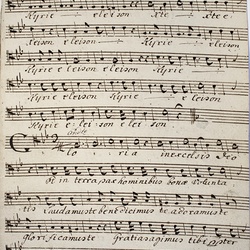 Kyrie eleison xte xte e
leison Kyrie eleison
Kyrie eleison eleison
leison Kyrie eleison
Kyrie e lei son e lei son
Gloria in excelsis Deo
et in terra pax hominibus bonæ volunta
tis Laudamus te benedicimus te adoramus te
glorificamus te gratias agimus tibi propter